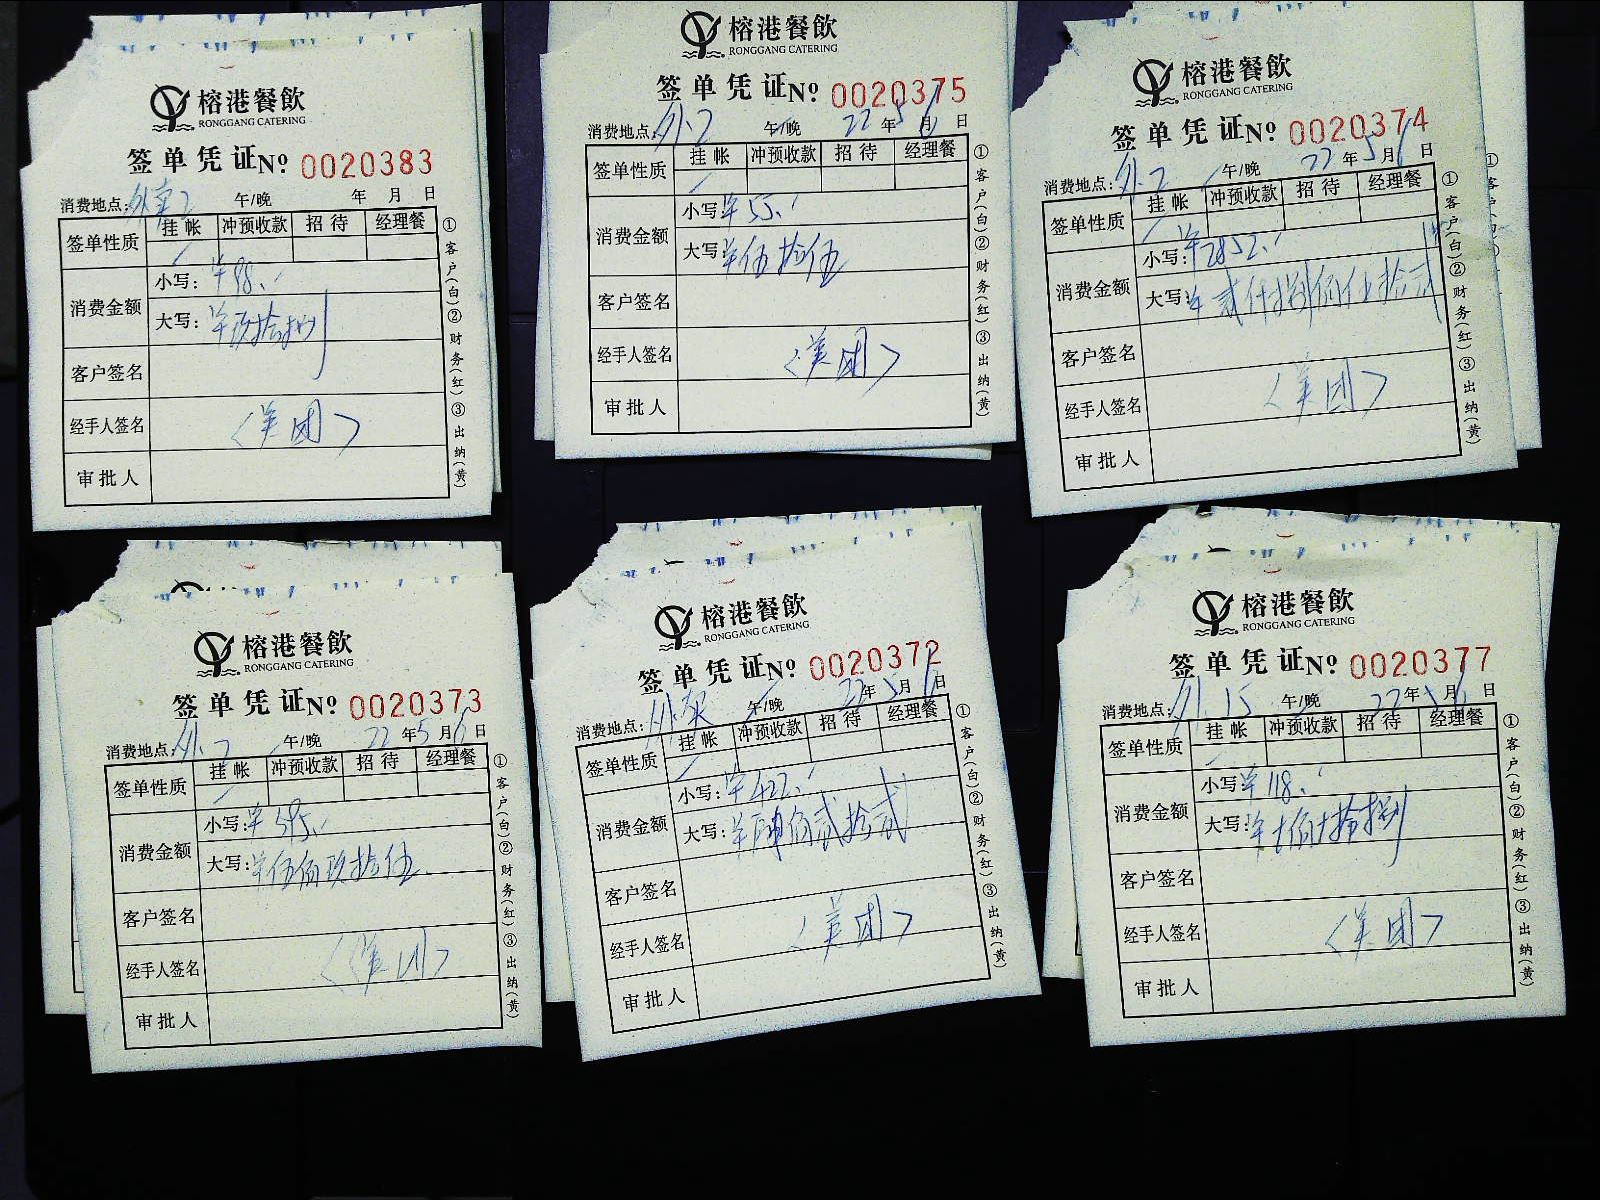 榕港餐飲
RONGGANG CATERING
签单凭证No 0020383
消费地点：外卖2 午/晚 年 月 日
签单性质 挂帐 冲预收款 招待 经理餐
消费金额 小写：¥98.-
大写：¥玖拾捌
客户签名
经手人签名 〈美团〉
审批人
①客户(白)②财务(红)③出纳(黄)
榕港餐飲
RONGGANG CATERING
签单凭证No 0020375
消费地点：外2 午/晚 22年5月6日
签单性质 挂帐 冲预收款 招待 经理餐
消费金额 小写：¥55.-
大写：¥伍拾伍
客户签名
经手人签名 〈美团〉
审批人
①客户(白)②财务(红)③出纳(黄)
榕港餐飲
RONGGANG CATERING
签单凭证No 0020374
消费地点：外2 午/晚 22年5月6日
签单性质 挂帐 冲预收款 招待 经理餐
消费金额 小写：¥2852.-
大写：¥贰仟捌佰伍拾贰
客户签名
经手人签名 〈美团〉
审批人
①客户(白)②财务(红)③出纳(黄)
榕港餐飲
RONGGANG CATERING
签单凭证No 0020373
消费地点：外2 午/晚 22年5月6日
签单性质 挂帐 冲预收款 招待 经理餐
消费金额 小写：¥595.-
大写：¥伍佰玖拾伍
客户签名
经手人签名 〈美团〉
审批人
①客户(白)②财务(红)③出纳(黄)
榕港餐飲
RONGGANG CATERING
签单凭证No 0020372
消费地点：外卖 午/晚 22年5月6日
签单性质 挂帐 冲预收款 招待 经理餐
消费金额 小写：¥422.-
大写：¥肆佰贰拾贰
客户签名
经手人签名 〈美团〉
审批人
①客户(白)②财务(红)③出纳(黄)
榕港餐飲
RONGGANG CATERING
签单凭证No 0020377
消费地点：外15 午/晚 22年5月6日
签单性质 挂帐 冲预收款 招待 经理餐
消费金额 小写：¥118.-
大写：¥壹佰壹拾捌
客户签名
经手人签名 〈美团〉
审批人
①客户(白)②财务(红)③出纳(黄)